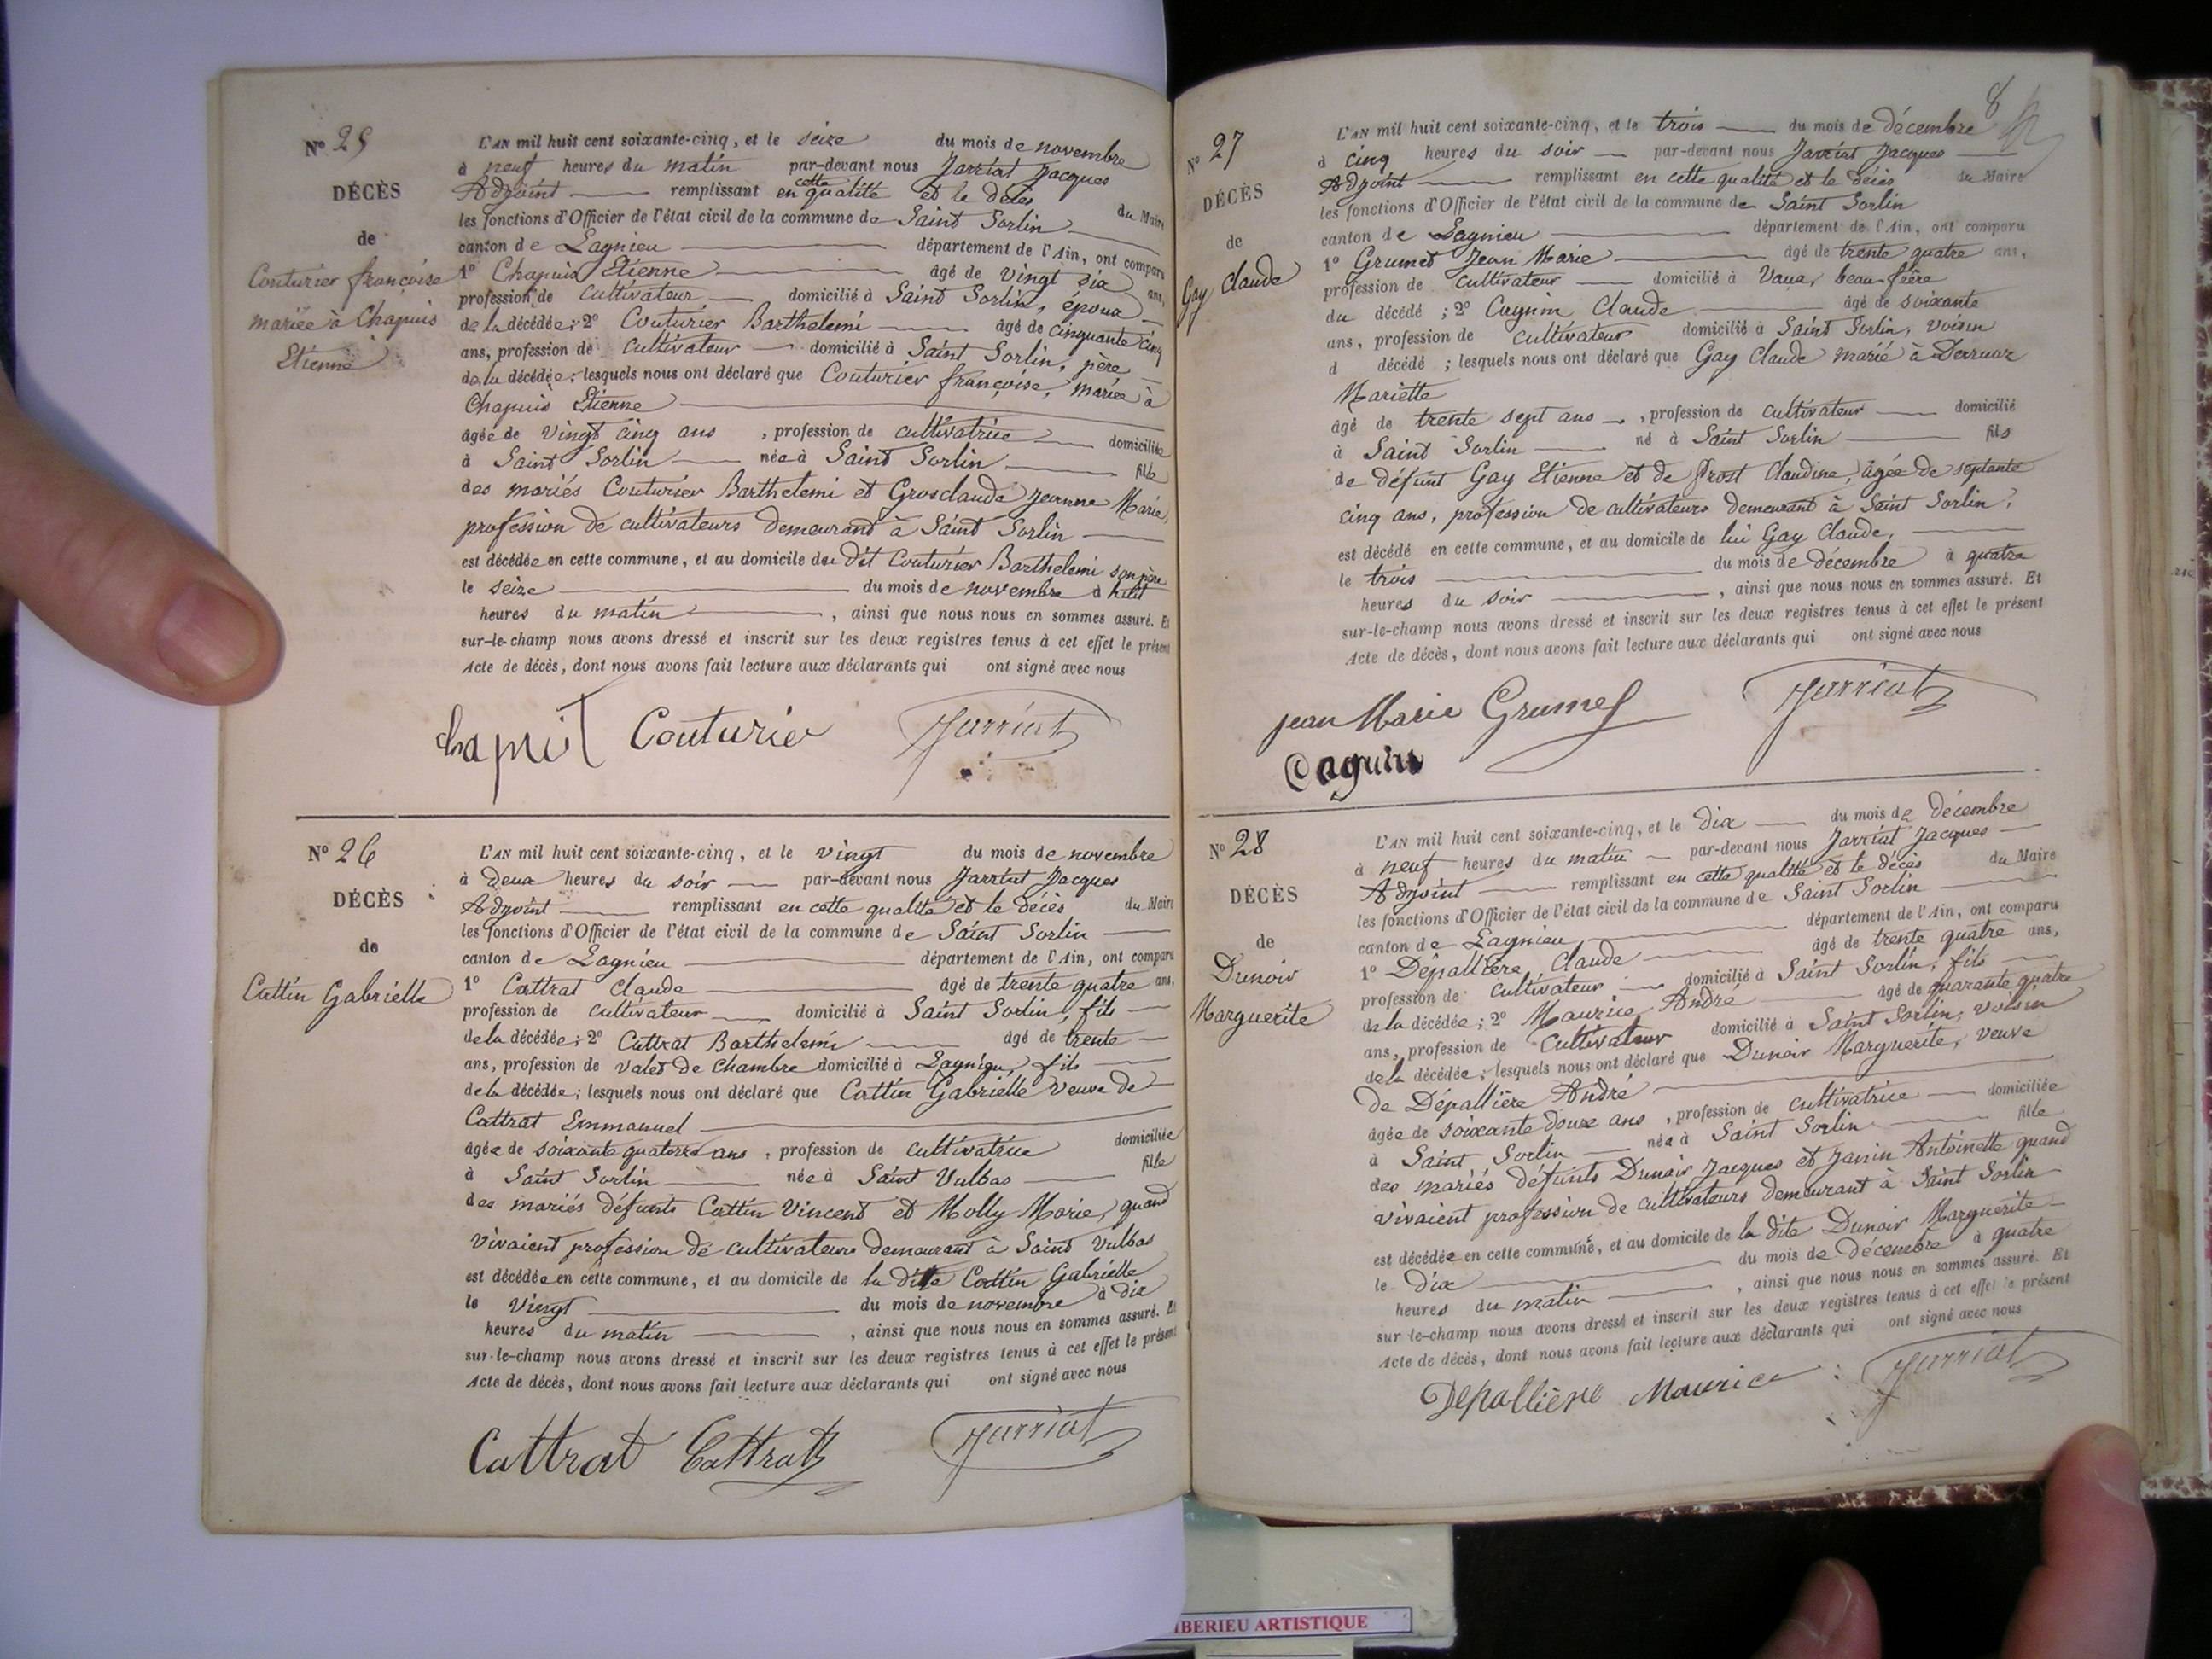 N° 25
DÉCÈS
de
Couturier françoise
mariée à Chapuis
Etienne
L'AN mil huit cent soixante-cinq, et le seize du mois de novembre
à neuf heures du matin par-devant nous Jarriat Jacques
Adjoint remplissant en cette qualité et le décès du Maire
les fonctions d'Officier de l'état civil de la commune de Saint Sorlin
canton de Lagnieu département de l'Ain, ont comparu
1° Chapuis Etienne âgé de vingt six ans,
profession de cultivateur domicilié à Saint Sorlin, époux
de la décédée; 2° Couturier Barthelemi âgé de cinquante cinq
ans, profession de cultivateur domicilié à Saint Sorlin, père
de la décédée; lesquels nous ont déclaré que Couturier françoise, mariée à
Chapuis Etienne
âgée de vingt cinq ans, profession de cultivatrice domiciliée
à Saint Sorlin née à Saint Sorlin fille
des mariés Couturier Barthelemi et Grosclaude Jeanne Marie,
profession de cultivateurs demeurant à Saint Sorlin
est décédée en cette commune, et au domicile du dit Couturier Barthelemi son père
le seize du mois de novembre à huit
heures du matin, ainsi que nous nous en sommes assuré. Et
sur-le-champ nous avons dressé et inscrit sur les deux registres tenus à cet effet le présent
Acte de décès, dont nous avons fait lecture aux déclarants qui ont signé avec nous
Couturier Jarriat
N° 26
DÉCÈS
de
Cattin Gabrielle
L'AN mil huit cent soixante-cinq, et le vingt du mois de novembre
à deux heures du soir par-devant nous Jarriat Jacques
Adjoint remplissant en cette qualité et le décès du Maire
les fonctions d'Officier de l'état civil de la commune de Saint Sorlin
canton de Lagnieu département de l'Ain, ont comparu
1° Cattrat Claude âgé de trente quatre ans,
profession de cultivateur domicilié à Saint Sorlin, fils
de la décédée; 2° Cattrat Barthelemi âgé de trente
ans, profession de valet de chambre domicilié à Lagnieu, fils
de la décédée; lesquels nous ont déclaré que Cattin Gabrielle veuve de
Cattrat Emmanuel
âgée de soixante quatorze ans, profession de cultivatrice domiciliée
à Saint Sorlin née à Saint Vulbas fille
des mariés défunts Cattin Vincent et Molly Marie, quand
vivaient profession de cultivateurs demeurant à Saint Vulbas
est décédée en cette commune, et au domicile de la dite Cattin Gabrielle
le vingt du mois de novembre à dix
heures du matin, ainsi que nous nous en sommes assuré. Et
sur-le-champ nous avons dressé et inscrit sur les deux registres tenus à cet effet le présent
Acte de décès, dont nous avons fait lecture aux déclarants qui ont signé avec nous
Cattrat Cattrat Jarriat
8
N° 27
DÉCÈS
de
Gay Claude
L'AN mil huit cent soixante-cinq, et le trois du mois de décembre
à cinq heures du soir par-devant nous Jarriat Jacques
Adjoint remplissant en cette qualité et le décès du Maire
les fonctions d'Officier de l'état civil de la commune de Saint Sorlin
canton de Lagnieu département de l'Ain, ont comparu
1° Grumet Jean Marie âgé de trente quatre ans,
profession de cultivateur domicilié à Vaux, beau-frère
du décédé; 2° Cagnin Claude âgé de soixante
ans, profession de cultivateur domicilié à Saint Sorlin, voisin
d décédé; lesquels nous ont déclaré que Gay Claude marié à Derruaz
Mariette
âgé de trente sept ans, profession de cultivateur domicilié
à Saint Sorlin né à Saint Sorlin fils
de défunt Gay Etienne et de Prost Claudine, âgée de septante
cinq ans, profession de cultivateurs demeurant à Saint Sorlin,
est décédé en cette commune, et au domicile de lui Gay Claude,
le trois du mois de décembre à quatre
heures du soir, ainsi que nous nous en sommes assuré. Et
sur-le-champ nous avons dressé et inscrit sur les deux registres tenus à cet effet le présent
Acte de décès, dont nous avons fait lecture aux déclarants qui ont signé avec nous
jean Marie Grumet Jarriat
Cagnin
N° 28
DÉCÈS
de
Dunoir
Marguerite
L'AN mil huit cent soixante-cinq, et le dix du mois de décembre
à neuf heures du matin par-devant nous Jarriat Jacques
Adjoint remplissant en cette qualité et le décès du Maire
les fonctions d'Officier de l'état civil de la commune de Saint Sorlin
canton de Lagnieu département de l'Ain, ont comparu
1° Dépallière Claude âgé de trente quatre ans,
profession de cultivateur domicilié à Saint Sorlin, fils
de la décédée; 2° Maurice André âgé de quarante quatre
ans, profession de cultivateur domicilié à Saint Sorlin, voisin
de la décédée; lesquels nous ont déclaré que Dunoir Marguerite, veuve
de Dépallière André
âgée de soixante douze ans, profession de cultivatrice domiciliée
à Saint Sorlin née à Saint Sorlin fille
des mariés défunts Dunoir Jacques et Janin Antoinette quand
vivaient profession de cultivateurs demeurant à Saint Sorlin
est décédée en cette commune, et au domicile de la dite Dunoir Marguerite
le dix du mois de décembre à quatre
heures du matin, ainsi que nous nous en sommes assuré. Et
sur-le-champ nous avons dressé et inscrit sur les deux registres tenus à cet effet le présent
Acte de décès, dont nous avons fait lecture aux déclarants qui ont signé avec nous
Depallière Maurice Jarriat
IBERIEU ARTISTIQUE